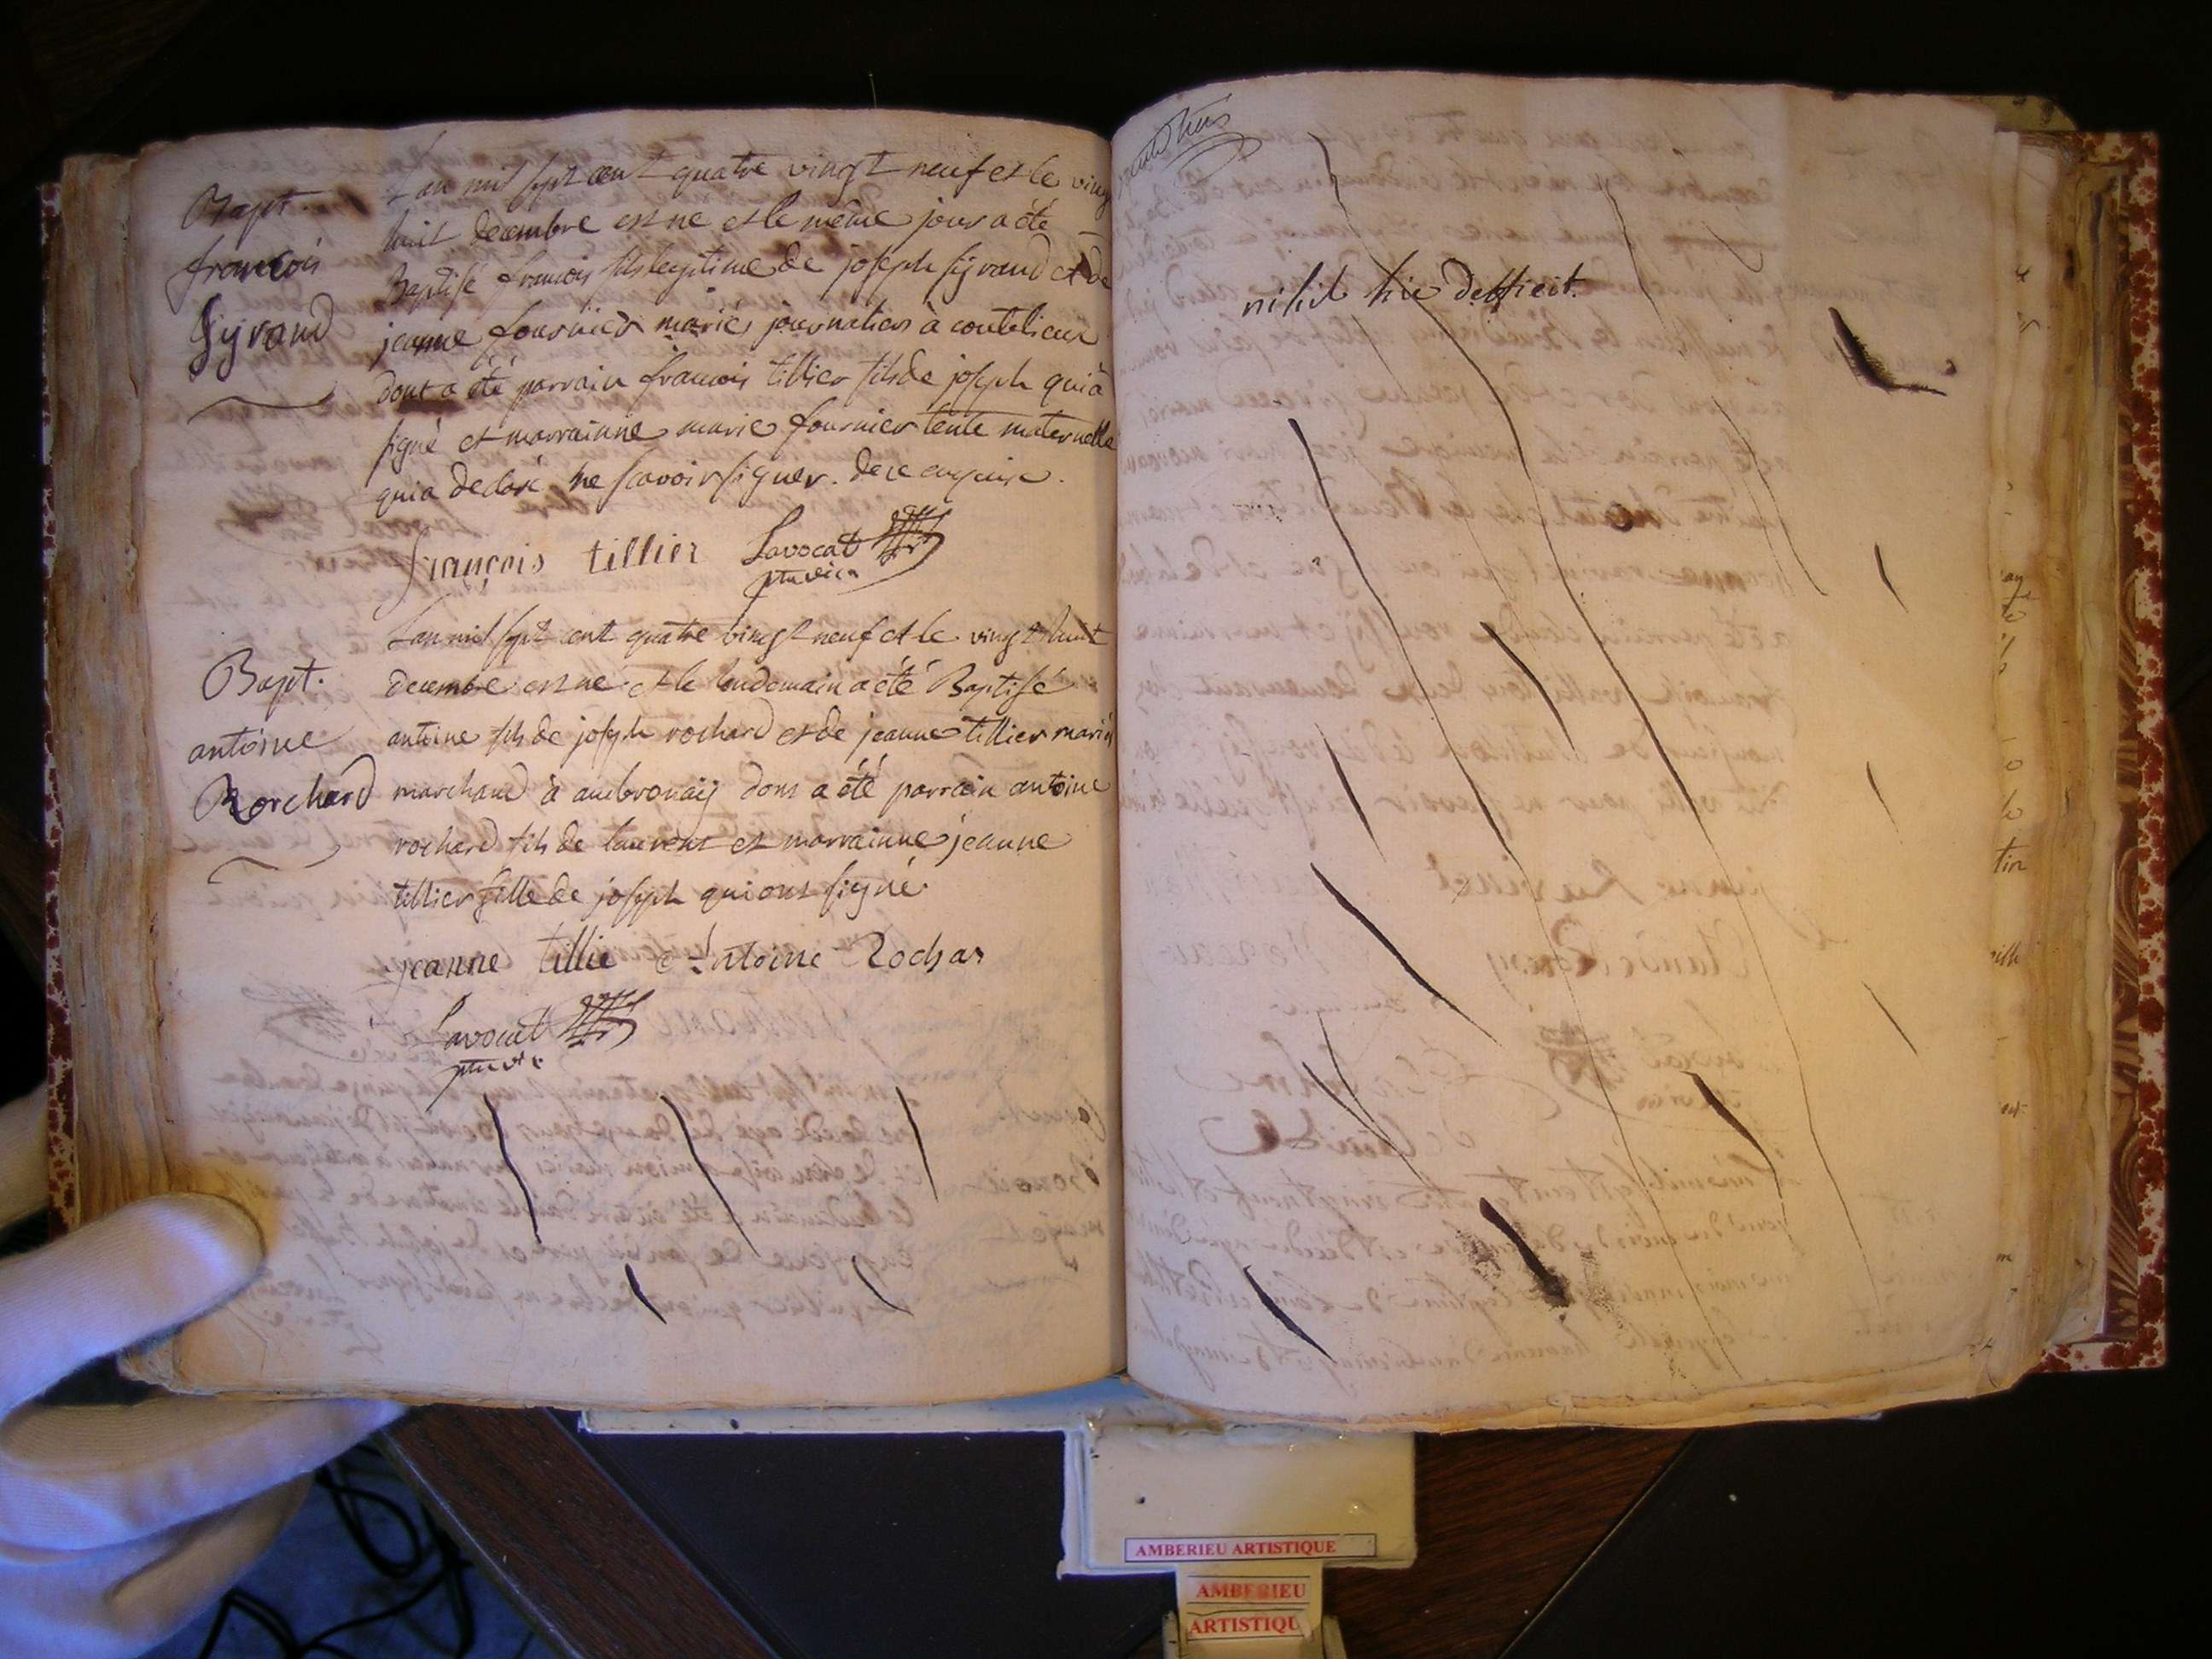 Bapt.
françois
Gyraud
L'an mil sept cent quatre vingt neuf et le vingt
huit decembre est ne et le même jour a été
Baptisé francois fils legitime de joseph gyraud et de
jeanne fournier mariés journaliers à coutelieux
dont a été parrain francois tillier fils de joseph qui a
signé et marrainne marie fournier tente maternelle
qui a declaré ne scavoir signer. de ce enquise.
françois tillier Lavocat
ptre vica
Bapt.
antoine
Rorchard
L'an mil sept cent quatre vingt neuf et le vingt huit
decembre est né et le lendemain a été Baptisé
antoine fils de joseph rochard et de jeanne tillier mariés
marchand à ambronaij dont a été parrain antoine
rochard fils de laurent et marrainne jeanne
tillier fille de joseph qui ont signé.
jeanne tillie antoine Rochar
Lavocat
ptre vic
nihil hic defficit.
AMBERIEU ARTISTIQUE
AMBERIEU
ARTISTIQU